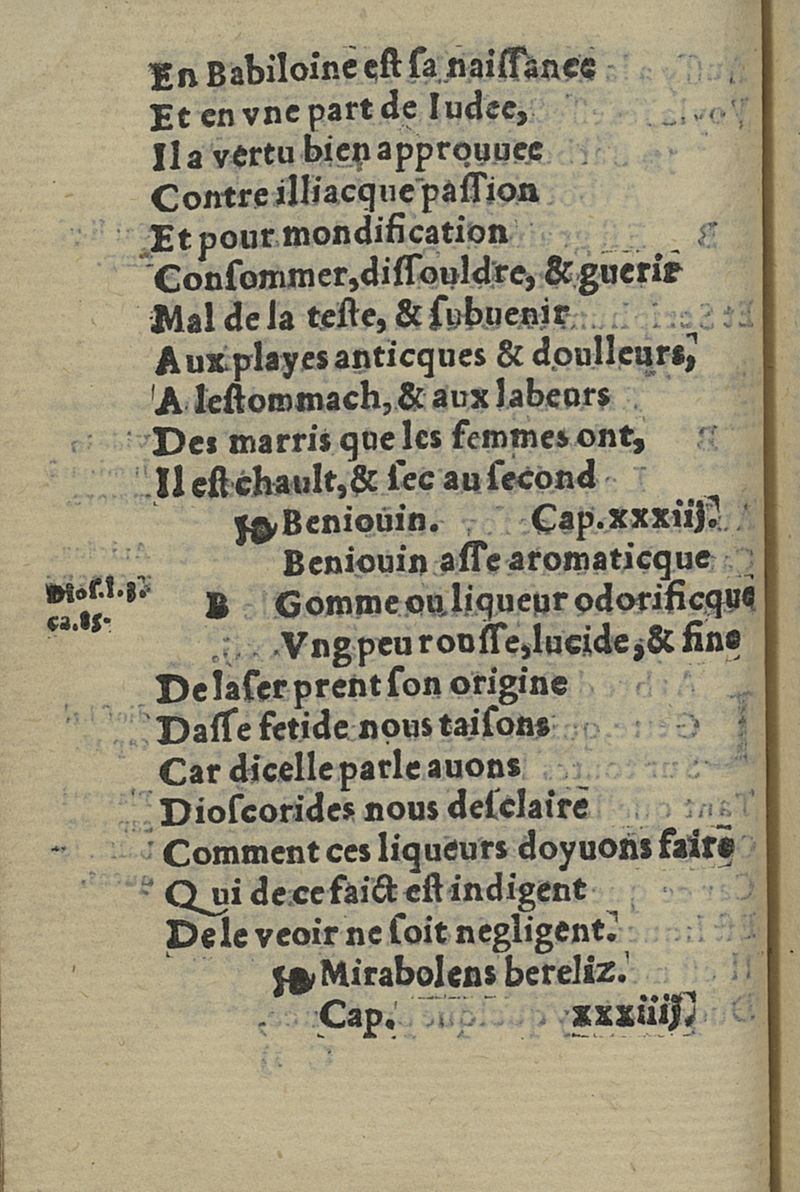 En Babiloine est sa naissance
Et en vne part de Iudee,
Il a vertu bien approuuee
Contre illiacque passion
Et pour mondification
Consommer, dissouldre, & guerir
Mal de la teste, & subuenir
Aux playes anticques & doulleurs,
A lestommach, & aux labeurs
Des marris que les femmes ont,
Il est chault, & sec au second
Beniouin. Cap. xxxiij.
Beniouin asse aromaticque
Dios. l. 3.
ca. 85.
B Gomme ou liqueur odorificque
Vng peu rousse, lucide, & fine
De laser prent son origine
Dasse fetide nous taisons
Car dicelle parle auons
Dioscorides nous desclaire
Comment ces liqueurs doyuons faire
Qui de ce faict est indigent
De le veoir ne soit negligent.
Mirabolens bereliz.
Cap. xxxiiij.